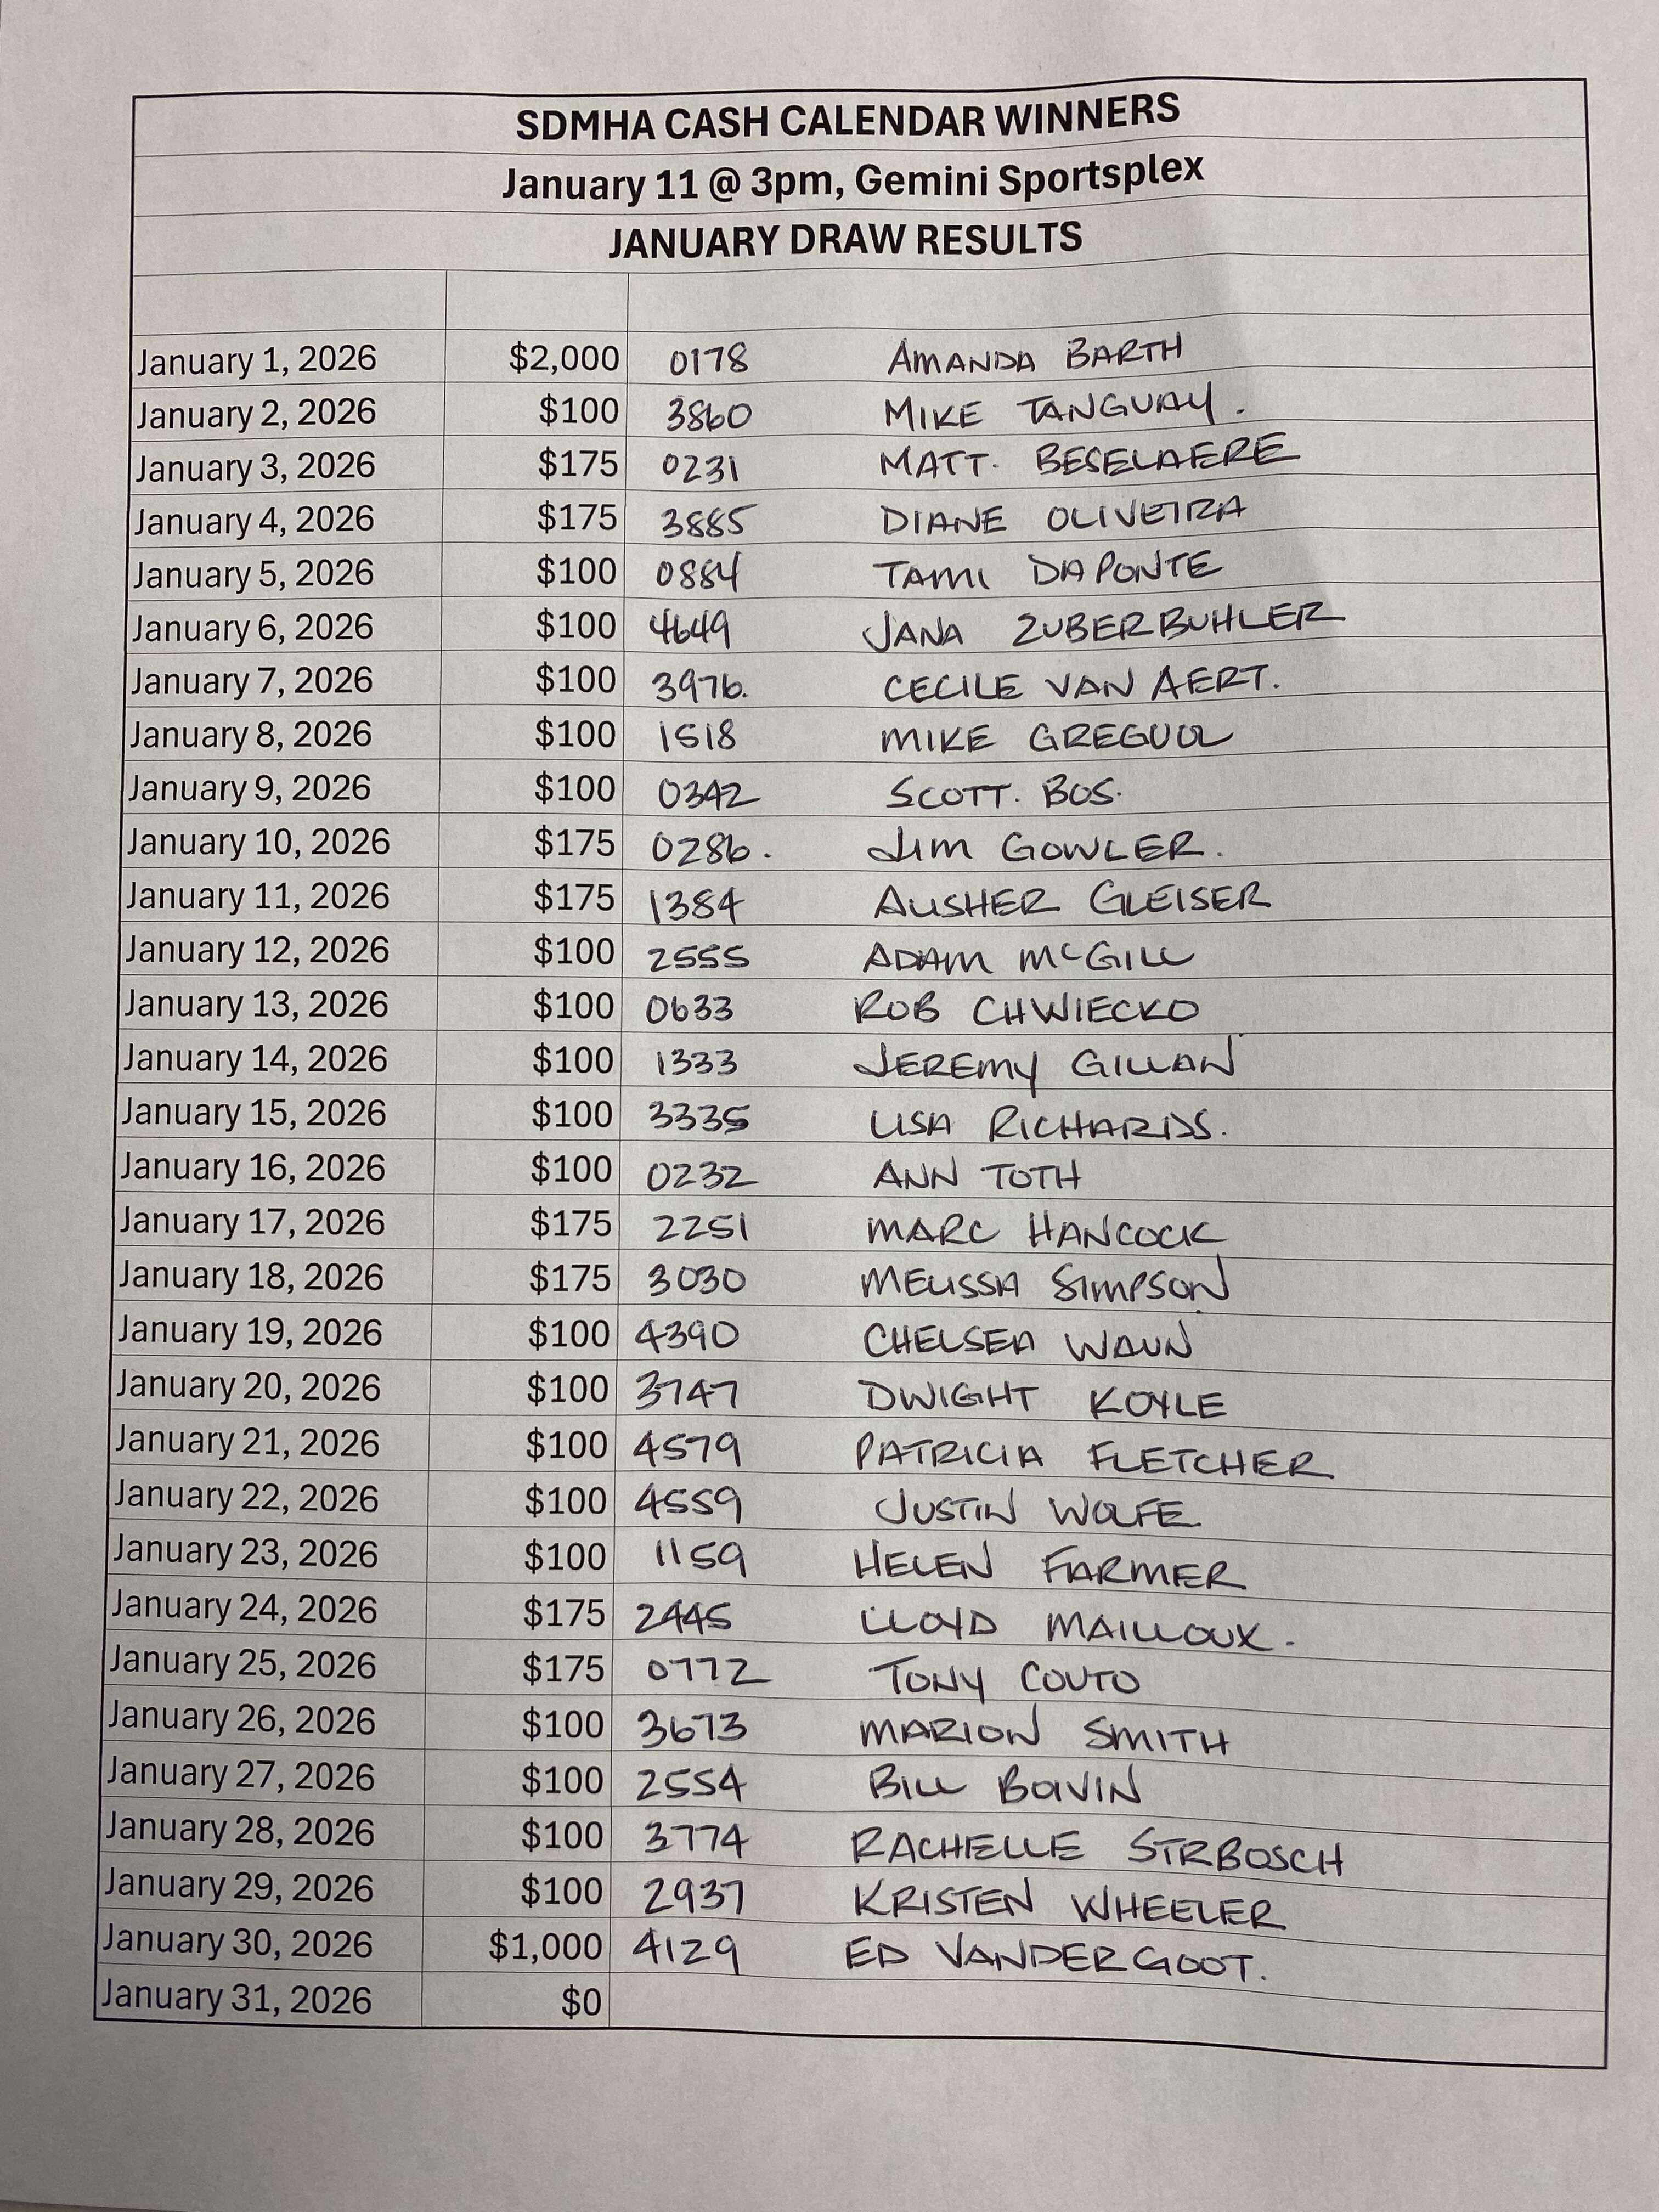 SDMHA CASH CALENDAR WINNERS
January 11 @ 3pm, Gemini Sportsplex
JANUARY DRAW RESULTS
January 1, 2026 $2,000 0178 AMANDA BARTH
January 2, 2026 $100 3860 MIKE TANGUAY.
January 3, 2026 $175 0231 MATT. BESELAERE
January 4, 2026 $175 3885 DIANE OLIVEIRA
January 5, 2026 $100 0884 TAMI DAPONTE
January 6, 2026 $100 4649 JANA ZUBERBUHLER
January 7, 2026 $100 3976. CECILE VAN AERT.
January 8, 2026 $100 1518 MIKE GREGUOL
January 9, 2026 $100 0342 SCOTT. BOS.
January 10, 2026 $175 0286. JIM GOWLER.
January 11, 2026 $175 1384 ALISHER GLEISER
January 12, 2026 $100 2555 ADAM McGILL
January 13, 2026 $100 0633 ROB CHWIECKO
January 14, 2026 $100 1333 JEREMY GILLAN
January 15, 2026 $100 3335 LISA RICHARDS.
January 16, 2026 $100 0232 ANN TOTH
January 17, 2026 $175 2251 MARC HANCOCK
January 18, 2026 $175 3030 MELISSA SIMPSON
January 19, 2026 $100 4390 CHELSEA WAUN
January 20, 2026 $100 3747 DWIGHT KOYLE
January 21, 2026 $100 4579 PATRICIA FLETCHER
January 22, 2026 $100 4559 JUSTIN WOLFE
January 23, 2026 $100 1159 HELEN FARMER
January 24, 2026 $175 2445 LLOYD MAILLOUX.
January 25, 2026 $175 0772 TONY COUTO
January 26, 2026 $100 3673 MARION SMITH
January 27, 2026 $100 2554 BILL BOIVIN
January 28, 2026 $100 3774 RACHELLE STRBOSCH
January 29, 2026 $100 2937 KRISTEN WHEELER
January 30, 2026 $1,000 4129 ED VANDERGOOT.
January 31, 2026 $0